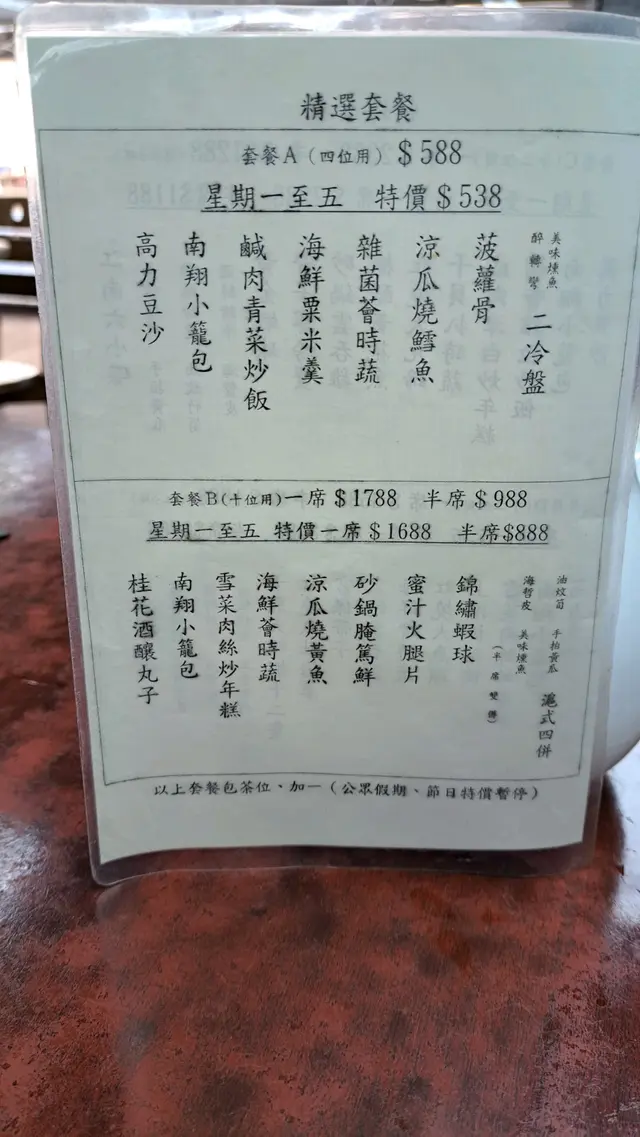 精選套餐
套餐A（四位用）$588
星期一至五 特價$538
美味燻魚
醉轉彎
二冷盤
菠蘿骨
涼瓜燒鱈魚
雜菌薈時蔬
海鮮粟米羹
鹹肉青菜炒飯
南翔小籠包
高力豆沙
套餐B（十位用）一席$1788 半席$988
星期一至五 特價一席$1688 半席$888
油炆筍 手拍黃瓜
海哲皮 美味燻魚
滬式四併
錦繡蝦球
（半席雙併）
蜜汁火腿片
砂鍋腌篤鮮
涼瓜燒黃魚
海鮮薈時蔬
雪菜肉絲炒年糕
南翔小籠包
桂花酒釀丸子
以上套餐包茶位、加一（公眾假期、節日特價暫停）